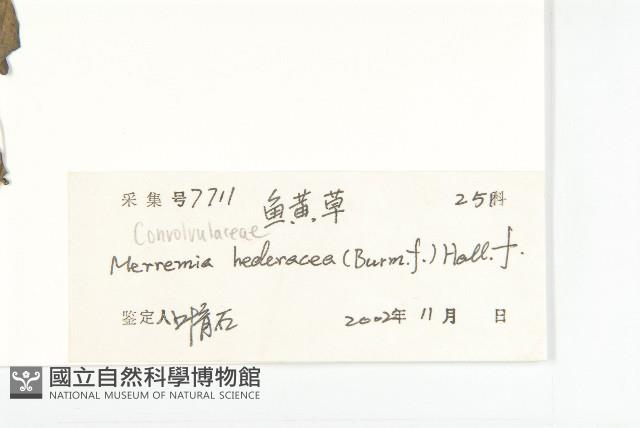 采集号 7711 鱼黄草 251科
Convolvulaceae
Merremia hederacea (Burm.f.) Hall.f.
鉴定人 叶育石 2002年 11月 日
國立自然科學博物館
NATIONAL MUSEUM OF NATURAL SCIENCE